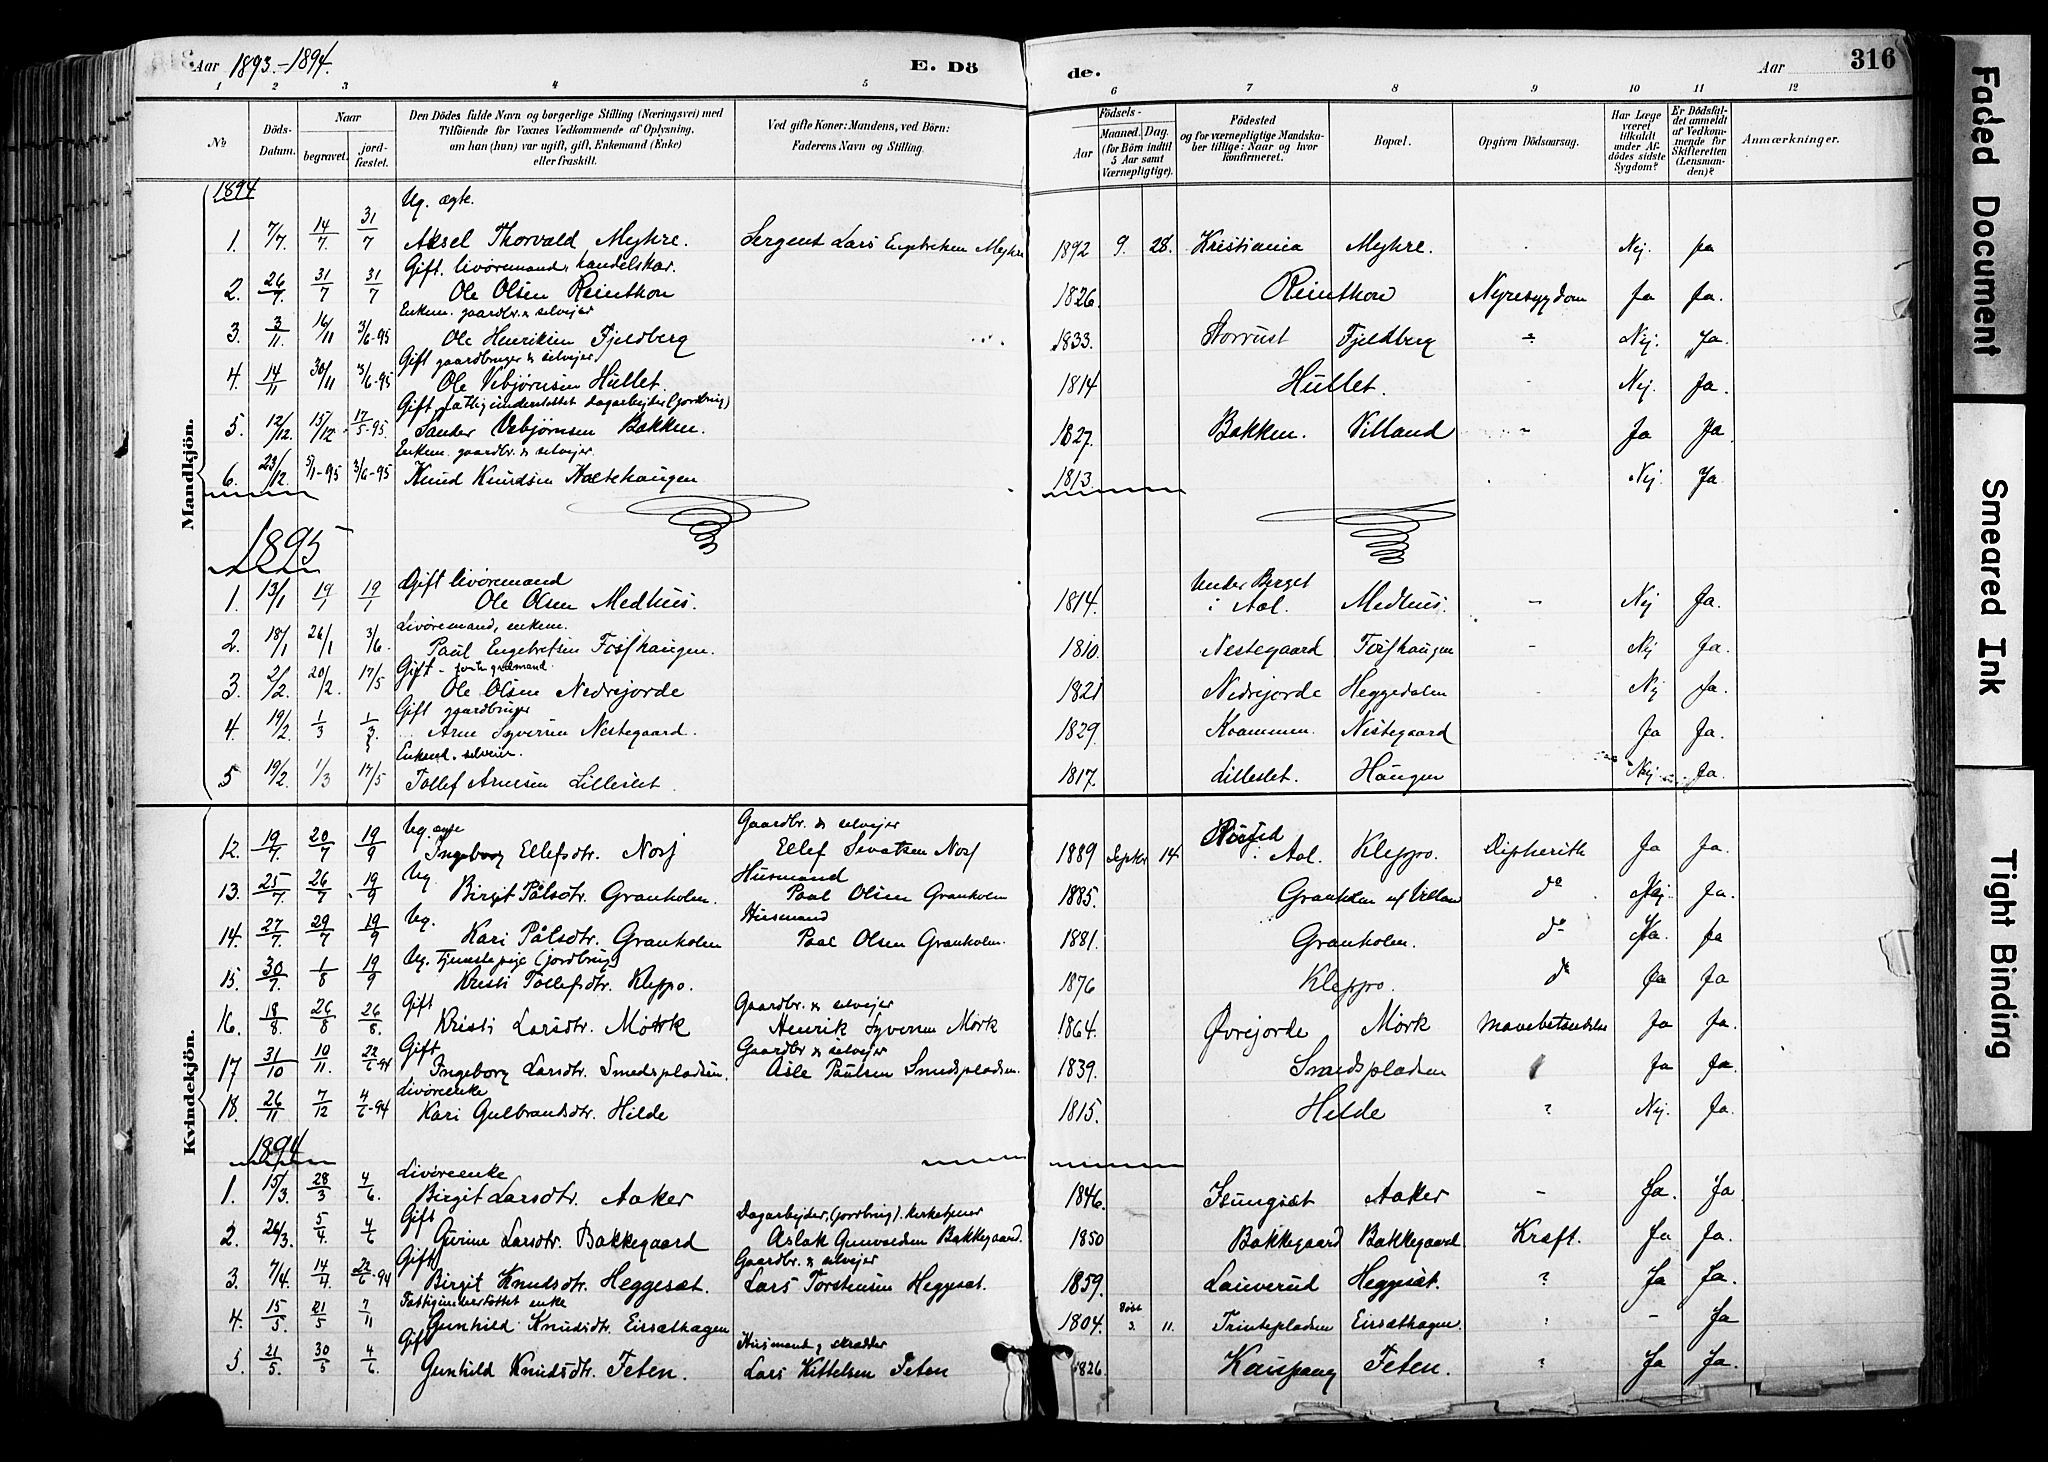 Aar 1893.-1894. E. Dö de. Aar 316
1 2 3 4 5 6 7 8 9 10 11 12
No Döds-Datum. Naar begravet. jordfæstet. Den Dödes fulde Navn og borgerlige Stilling (Næringsvei) med Tilföiende for Voxnes Vedkommende af Oplysning, om han (hun) var ugift, gift, Enkemand (Enke) eller fraskilt. Ved gifte Koner: Mandens, ved Börn: Faderens Navn og Stilling. Födsels- Aar Maaned. Dag. (for Börn indtil 5 Aar samt Værnepligtige). Födested og for værnepligtige Mandskaber tillige: Naar og hvor konfirmeret. Bopæl. Opgiven Dödsaarsag. Har Læge været tilkaldt under Afdödes sidste Sygdom? Er Dödsfaldet anmeldt af Vedkommende for Skifteretten (Lensmanden)? Anmærkninger.
Mandkjön.
1894 Ug. ægte.
1. 7/7. 14/7 31/7 Aksel Thorvald Myhre. Sergent Lars Engebretsen Myhre 1892 9. 28. Kristiania Myhre. Nej. ja
Gift. livøremand, handelskar.
2. 26/7. 31/7 31/7 Ole Olsen Reinthon 1826. Reinthon Nyresygdom Ja Ja.
Enkem. gaardbr. & selvejer
3. 3/11. 16/11 3/6-95 Ole Henriksen Fjeldberg 1833. Torrust Fjeldberg ? Nej. Ja.
Gift gaardbruger & selvejer
4. 14/11 30/11 3/6-95 Ole Vebjørnsen Hullet. 1814 Hullet. Nej. Ja.
Gift, fattigunderstøttet dagarbejder (jordbrug)
5. 12/12. 15/12 17/5-95. Sander Vebjørnsen Bakken. 1827. Bakken. Villand Ja Ja.
Enkem. gaardbr. & selvejer.
6. 23/12. 5/1-95 3/6-95 Knud Knudsen Holtehaugen 1813. Nej. Ja.
1895
Gift livøremand Under Berget
1. 13/1 19/1 19/1 Ole Olsen Medhus. 1814. i Aal. Medhus. - Nej Ja.
Livøremand, enkem.
2. 18/1 26/1 3/6. Paul Engebretsen Fosshaugen. 1810. Nestegaard Fosshaugen - Nej Ja.
Gift -
3. 2/2. 20/2. 17/5 Ole Olsen Nedrejorde 1821 Nedrejorde Heggedalen Nej Ja.
Gift gaardbruger
4. 19/2. 1/3 1/3 Arne Syversen Nestegaard. 1829. Kvammen Nestegaard Ja Ja.
Enkem. selveier.
5 19/2. 1/3 17/5 Tollef Arnesen Lilleslet. 1817. Lilleslet. Haugen Nej. Ja.
Kvindekjön.
Ug. ægte Gaardbr. & selvejer
12. 19/7. 20/7 19/9 Ingeborg Ellefsdtr. Nos Ellef Sevatsen Nos 1889 Septbr 14. Aal. Kleppo. Dipherith Ja Ja.
Ug Husmand
13. 25/7. 26/7 19/9 Birgit Pålsdtr. Granholm. Paal Olsen Granholm 1885. Granholm do Nej. Ja.
Ug. Husmand
14. 27/7. 29/7 19/9 Kari Pålsdtr. Granholm Paal Olsen Granholm. 1881. Granholm. do Ja. Ja
Ug. Tjenestepige (jordbrug)
15. 30/7. 1/8 19/9 Kristi Tollefsdtr. Kleppo. 1876 Kleppo. do Ja Ja
Gift Gaardbr. & selvejer
16. 18/8. 26/8 26/8. Kristi Larsdtr. Mørk Henrik Syversen Mørk 1864. Øvrejorde Mørk Mavebetændelse Ja Ja.
Gift Gaardbr & selvejer
17 31/10 10/11. 22/6-94 Ingeborg Larsdtr. Smedspladsen. Asle Paulsen Smedspladsen. 1839. Smedspladsen Ja Ja.
Livøreenke
18. 26/11 7/12 4/6-94 Kari Gulbrandsdtr. Hilde 1815. Hilde ? Nej. Ja.
1894
Livøreenke
1. 15/3. 28/3 4/6. Birgit Larsdtr. Aaker 1846. Isungset Aaker - Ja. Ja
Gift Dagarbejder, (jordbrug). kirketjener
2. 26/3. 5/4 4/6 Gurine Larsdtr. Bakkegaard Aslak Gunvaldsen Bakkegaard. 1850 Bakkegaard Bakkegaard Kræft. Ja Ja.
Gift Gaardbr. & selvejer
3. 7/4. 14/4. 22/6-94 Birgit Knudsdtr. Heggesæt. Lars Torstensen Heggesæt. 1859. Lauverud Heggesæt. ? Ja Ja.
Fattigunderstøttet enke
4. 15/5. 21/5 7/11 Gunhild Knudsdtr. Eirsæthagen 1804. 3. 11. Trintepladsen Eirsæthagen. ? - Ja
Gift Husmand & skrædder
5. 21/5. 30/5 4/6. Gunhild Knudsdtr. Feten. Lars Kittelsen Feten 1826. Kaupang Feten. ? Ja Ja.
Faded Document
Smeared Ink
Tight Binding